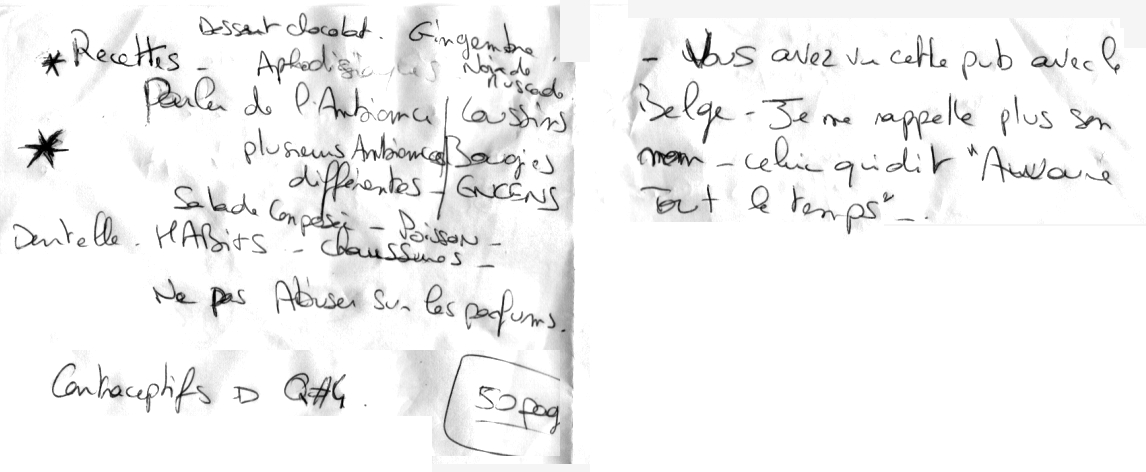 Dessert chocolat. Gingembre
* Recettes - Aphrodisiaques Noix de
Muscade
Parler de l'Ambiance / Coussins
* plusieurs Ambiances Bougies
différentes - ENCENS
Salade Composée - Poisson -
Dentelle. HABits - Chaussures -
Ne pas Abuser sur les parfums.
Contraceptifs D Q#4.
50 pag
- Vous avez vu cette pub avec le
Belge - Je me rappelle plus son
nom - celui qui dit "
Tout le temps" -.